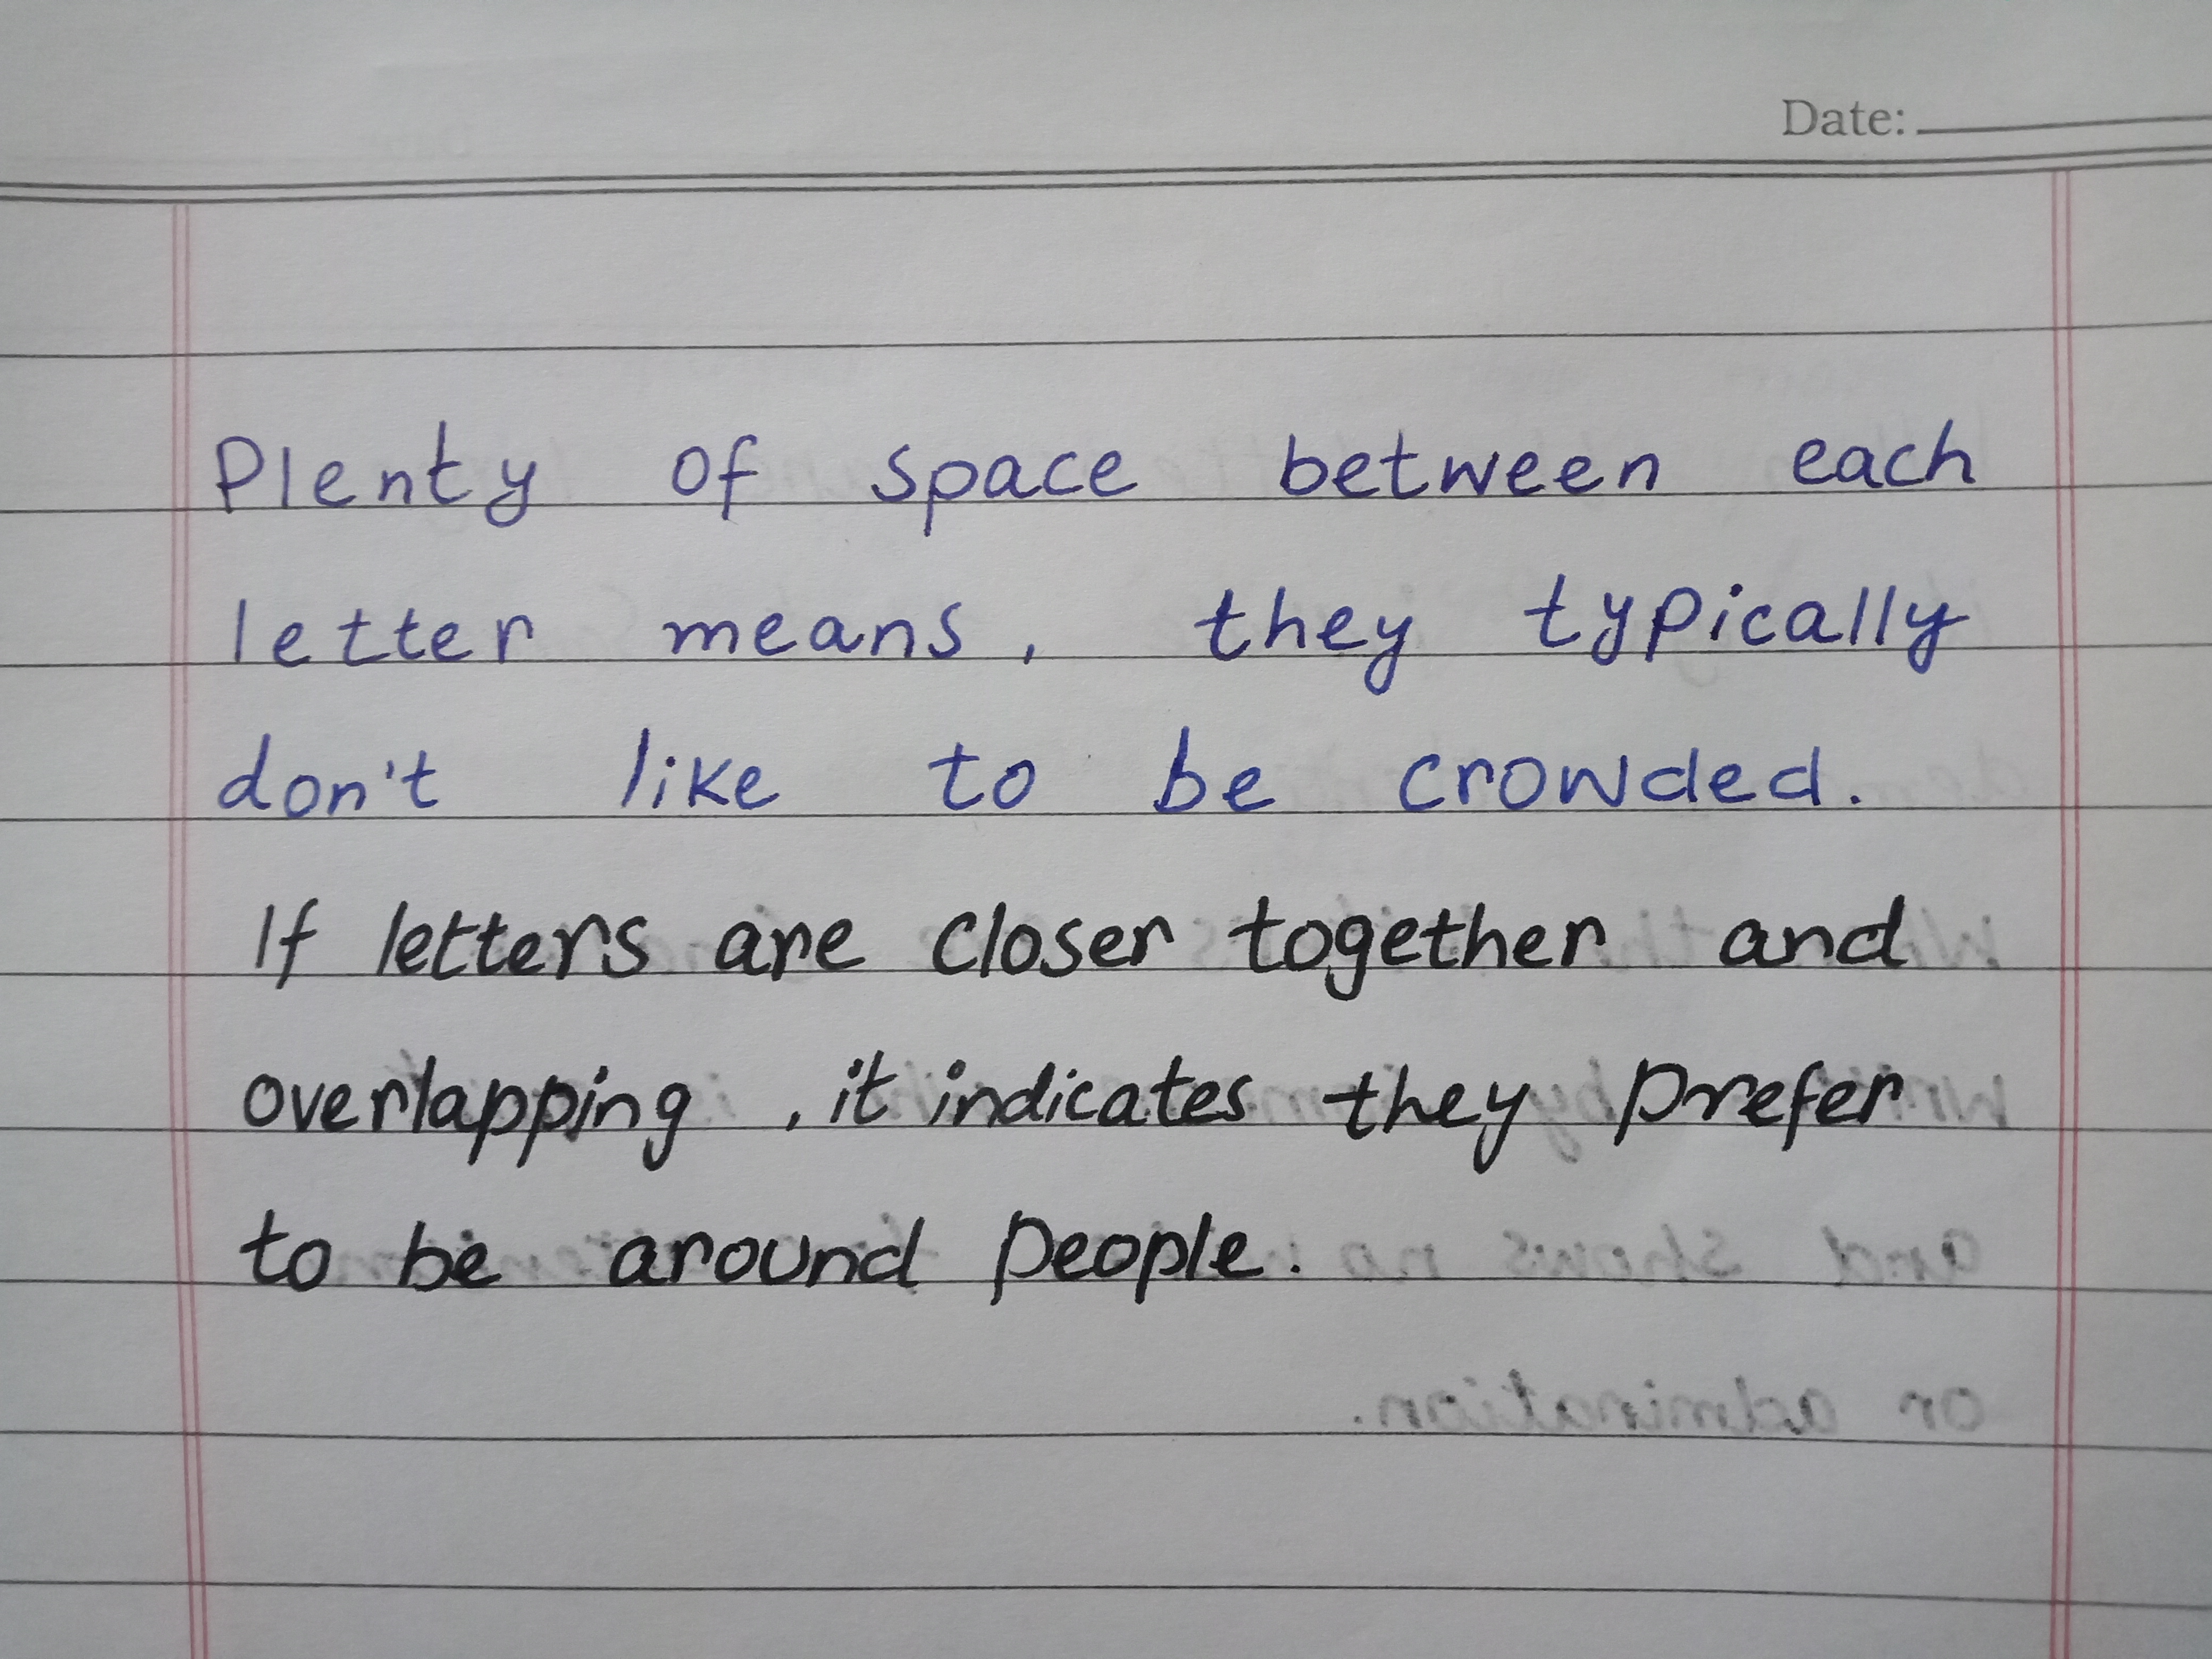 Date:
Plenty of space between each
letter means, they typically
don't like to be crowded.
If letters are closer together and
overlapping, it indicates they prefer
to be around people.
or admination.